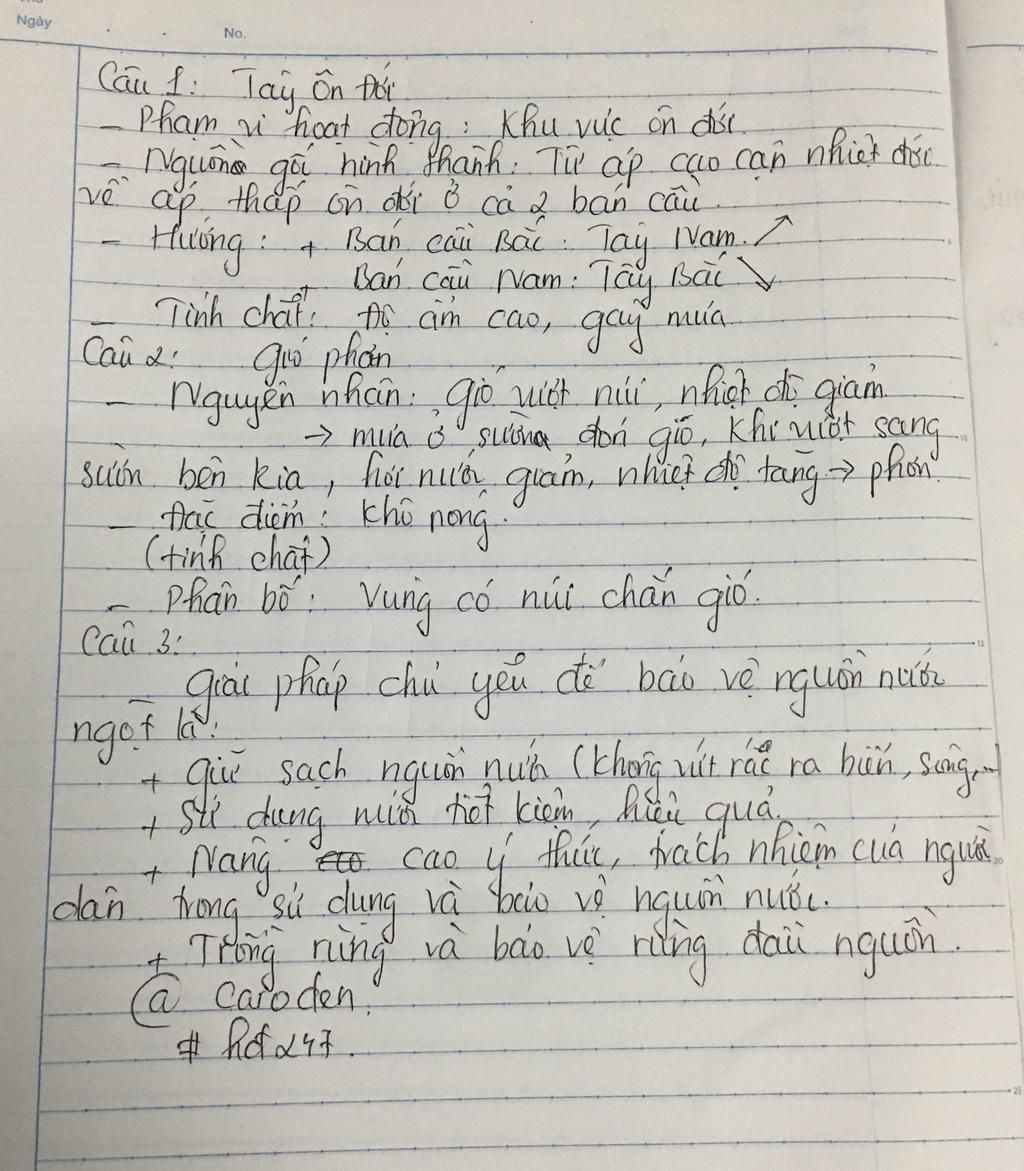 Ngày
No.
Câu 1: Tây Ôn Đới
- Phạm vi hoạt động: Khu vực ôn đới.
- Nguồn gốc hình thành: Từ áp cao cận nhiệt đới
về áp thấp ôn đới ở cả 2 bán cầu.
- Hướng: + Bán cầu Bắc: Tây Nam. ↗
+ Bán cầu Nam: Tây Bắc ↘
- Tính chất: Độ ẩm cao, gây mưa
Câu 2: Gió phơn
- Nguyên nhân: Gió vượt núi, nhiệt độ giảm
→ mưa ở sườn đón gió, Khi vượt sang
sườn bên kia, hơi nước giảm, nhiệt độ tăng → phơn.
- Đặc điểm: Khô nóng.
(tính chất)
- Phân bố: Vùng có núi chắn gió.
Câu 3:
- Giải pháp chủ yếu để bảo vệ nguồn nước
ngọt là:
+ Giữ sạch nguồn nước (không vứt rác ra biển, sông,...)
+ Sử dụng nước tiết kiệm, hiệu quả.
+ Nâng cao ý thức, trách nhiệm của người
dân trong sử dụng và bảo vệ nguồn nước.
+ Trồng rừng và bảo vệ rừng đầu nguồn.
@ Caroden.
# hđ247.